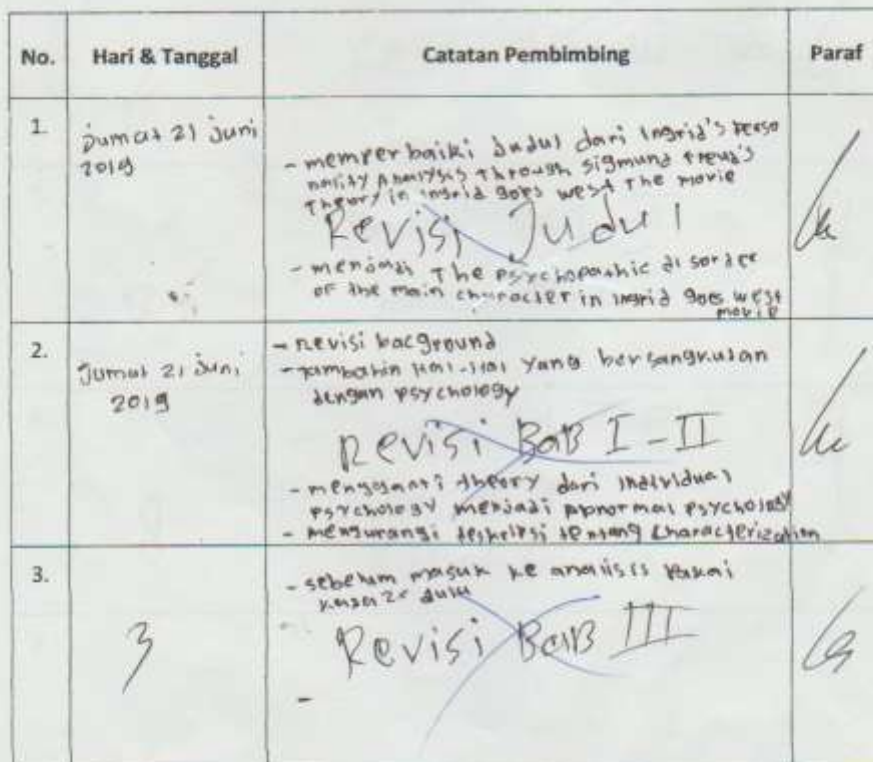 No. Hari & Tanggal Catatan Pembimbing Paraf
1. Jumat 21 Juni
2019
- memperbaiki Judul dari Ingrid's perso
nality Analysis Through Sigmund Freud's
Theory in ingrid goes west The movie
Revisi Judul
- menjadi The psychopathic disorder
of the main character in ingrid goes west
movie
2. Jumat 21 Juni
2019
- Revisi bacground
- tambahin hal-hal yang bersangkutan
dengan psychology
Revisi BAB I - II
- mengganti theory dari individual
psychology menjadi abnormal psychology
- mengurangi deskripsi tentang characterization
3. 3
- sebelum masuk ke analisis pakai
dulu
Revisi BAB III
-